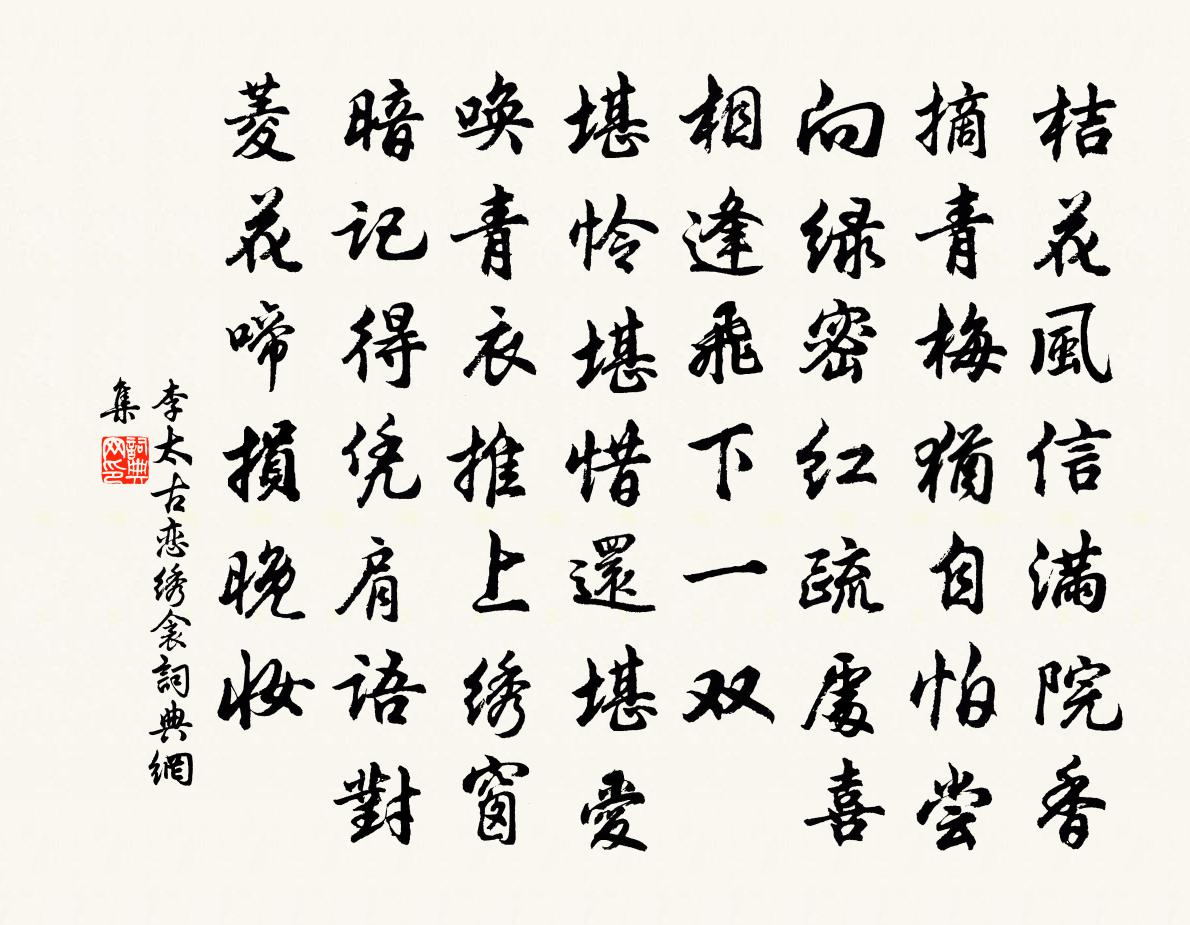 桔花風信滿院香
摘青梅猶自怕尝
向绿密红疏處喜
相逢飛下一双
堪怜堪惜還堪愛
唤青衣推上绣窗
暗記得凭肩語對
菱花啼損晚妆
李太古恋绣衾詞典網
集
詞典
网印